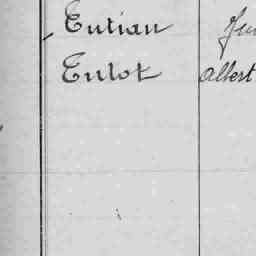 Tutian
Tulot Albert